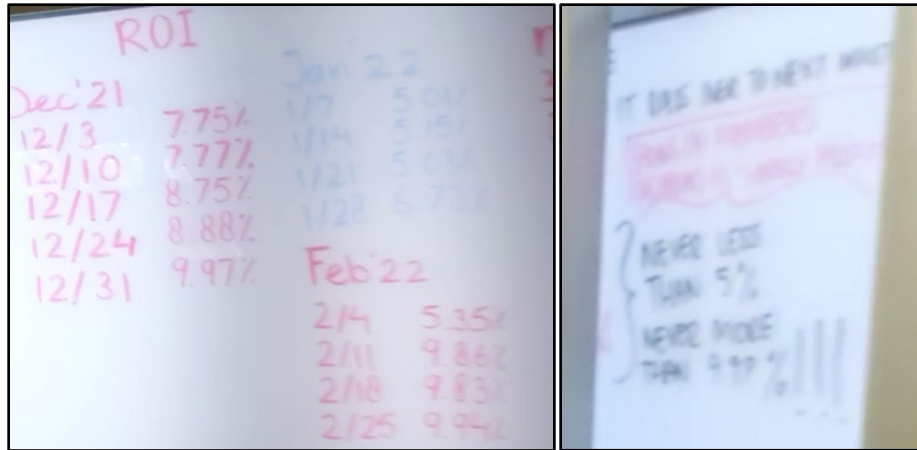 ROI
Dec'21
12/3 7.75%
12/10 7.77%
12/17 8.75%
12/24 8.88%
12/31 9.97%
Jan 22
1/7 5.01%
1/14 5.15%
1/21 5.03%
1/28 6.73%
Feb'22
2/4 5.35%
2/11 9.86%
2/18 9.83%
2/25 9.94%
IT DOES TO NEXT
NEVER LESS
THAN 5%
NEVER MORE
THAN 9.99%